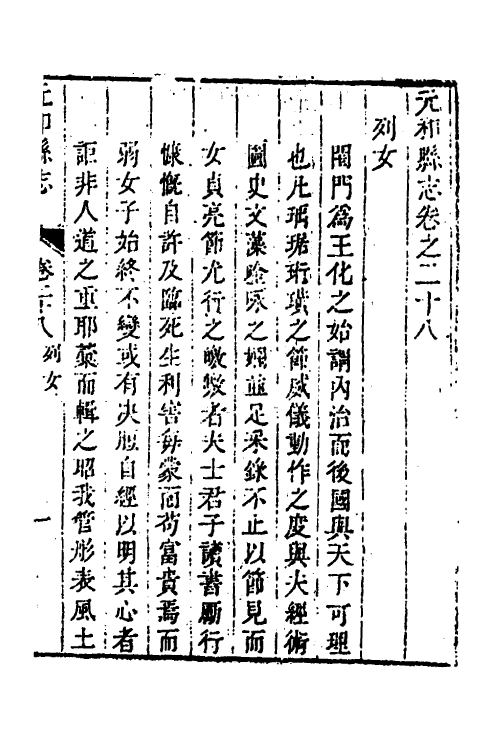 元和縣志卷之二十八
列女
閨門爲王化之始謂內治而後國與天下可理
也凡瑀琚珩璜之節威儀動作之度與夫經術
圖史文藻唫咏之嫺並足采錄不止以節見而
女貞亮節尤行之皦皦者夫士君子讀書勵行
慷慨自許及臨死生利害每蒙面苟富貴焉而
弱女子始終不變或有決脰自經以明其心者
詎非人道之重耶蒙而輯之昭我管彤表風土
元和縣志
卷二十八
列女
一